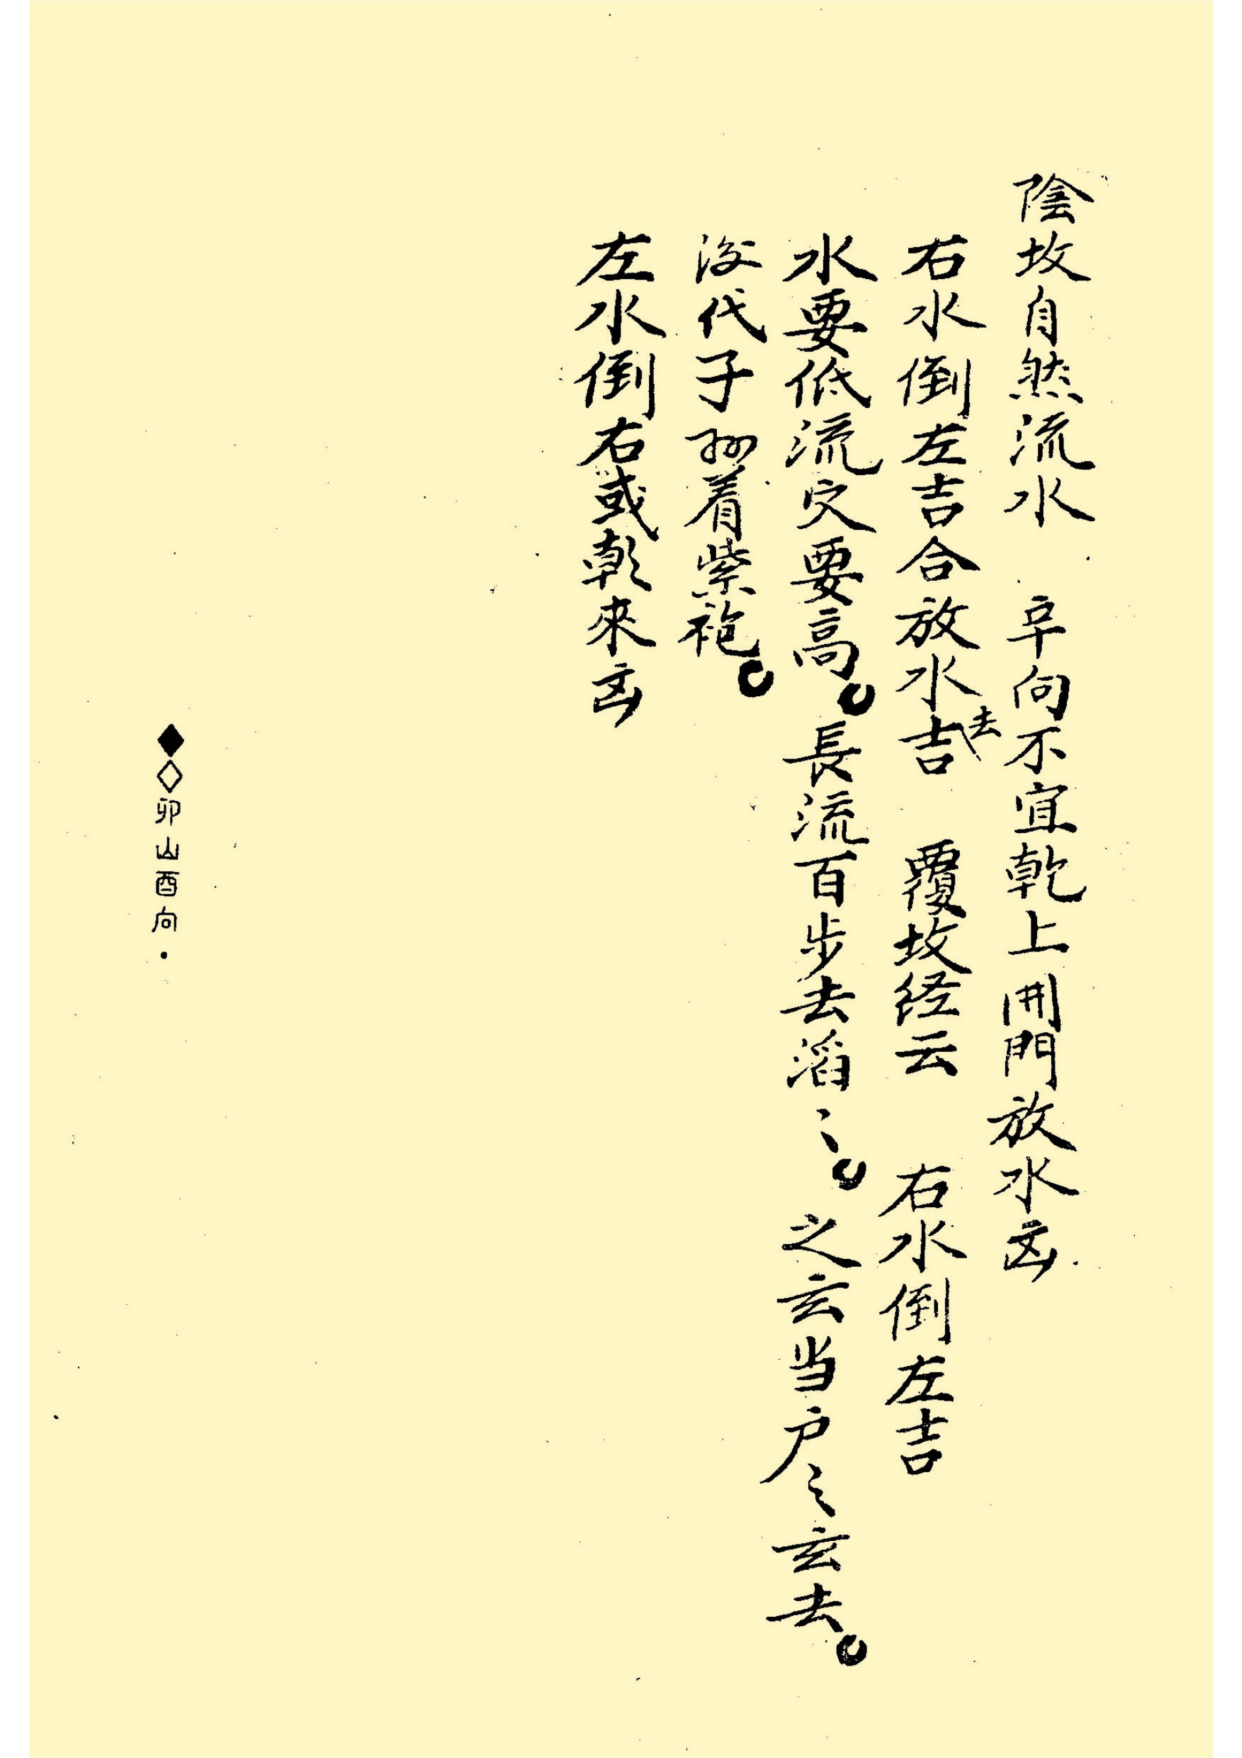 陰坟自然流水　辛向不宜乾上開門放水凶
右水倒左吉合放水去吉　覆坟経云　右水倒左吉
水要低流穴要高。長流百步去滔〻。之玄当户之玄去。
後代子孙着紫袍。
左水倒右或乾來凶
◆◇卯山酉向．